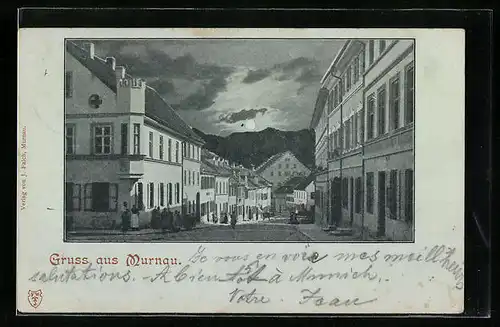 Verlag von J. Fatch, Murnau.
Gruss aus Murnau.
Je vous en voie, mes meilleures
salutations. A bientôt à Munich,
Votre Jean